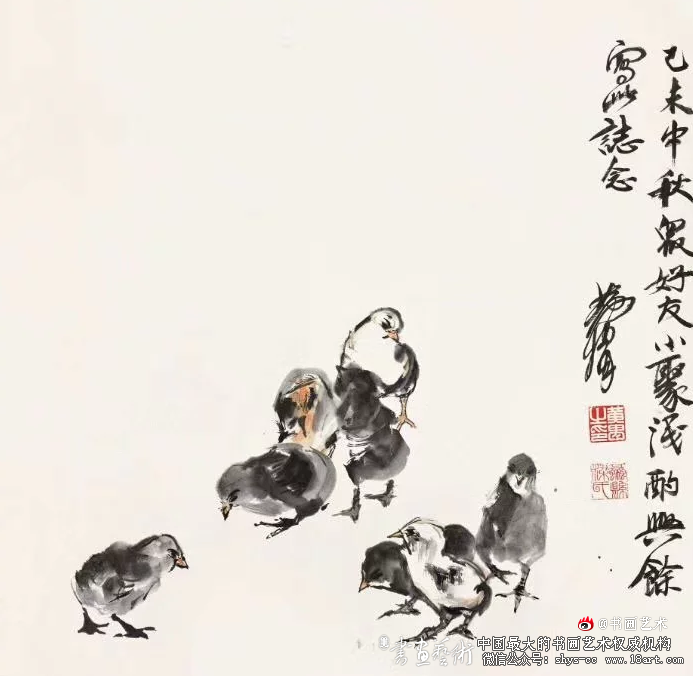 己未中秋眾好友小聚淺酌興餘
寫此誌念
萬昌之印
@书画艺术
書畫藝術
中国最大的书画艺术权威机构
微信公众号：shys-cc www.18art.com